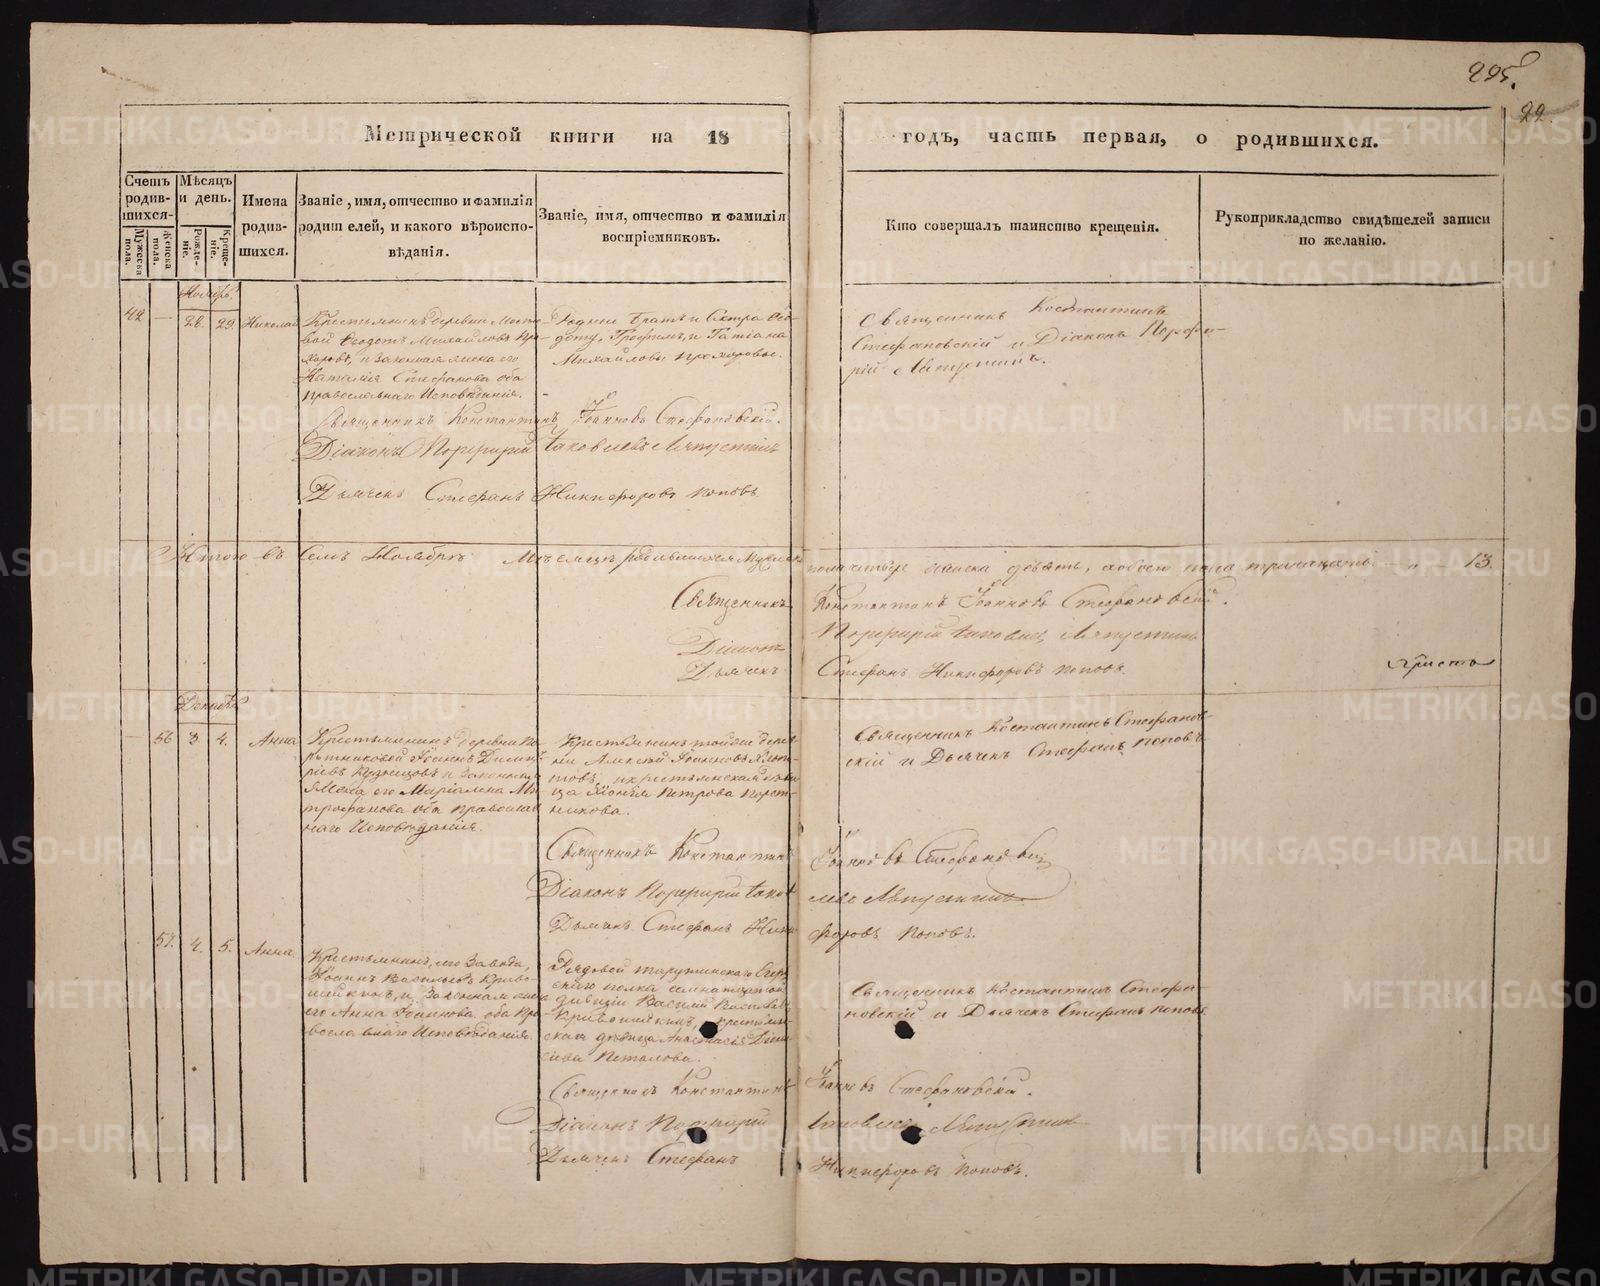 295.
29
Метрической книги на 18 годъ, часть первая, о родившихся.
Счетъ родившихся.
Мужеска пола.
Женска пола.
Мѣсяцъ и день.
Рожденіе.
Крещеніе.
Имена родившихся.
Званіе, имя, отчество и фамилія родителей, и какого вѣроисповѣданія.
Званіе, имя, отчество и фамилія воспріемниковъ.
Кто совершалъ таинство крещенія.
Рукоприкладство свидѣтелей записи по желанію.
Ноябрь
42 — 28. 29. Николай
Крестьянинъ деревни
Ѳеодотъ Михайловъ
и законная жена его
Наталія Стефанова оба
православнаго Исповѣданія.
Родные братъ и сестра
и Татіана
Михайловы
Священникъ Костантинъ
Стефановскій и Діаконъ Порфи-
рій Ляпустинъ.
Священникъ Константинъ Іоанновъ Стефановскій.
Діаконъ Порфирій Іаковлевъ Ляпустинъ
Дьячекъ Стефанъ Никифоровъ Поповъ
Итого въ семъ Ноябрѣ Мѣсяцѣ родившихся мужеска пола четыре женска девять, обоего пола тринадцать — 13.
Священникъ Константинъ Іоанновъ Стефановскій.
Діаконъ Порфирій Іаковлевъ Ляпустинъ
Дьячекъ Стефанъ Никифоровъ Поповъ.
Декабрь
— 56 3 4. Анна
Крестьянинъ деревни
Іоаннъ Димит-
ріевъ Кузнецовъ и законная
жена его Маріамна Ми-
трофанова оба православ-
наго Исповѣданія.
Крестьянинъ тойже дерев-
ни Алексѣй Іоанновъ
и крестьянская дѣви-
ца Петрова
Священникъ Костантинъ Стефанов-
скій и Дьячекъ Стефанъ Поповъ
Священникъ Константинъ Іоанновъ Стефановскій
Діаконъ Порфирій Іаковлевъ Ляпустинъ
Дьячекъ Стефанъ Никифоровъ Поповъ.
57. 4. 5. Анна
Крестьянинъ сего Завода,
Іоаннъ Васильевъ
и законная жена
его Анна Іоаннова оба пра-
вославнаго Исповѣданія.
Рядовой Тарутинскаго Егер-
скаго полка семнадцатой
дивизіи Василій
крестьян-
ская дѣвица Анастасія
Священникъ Костантинъ Стефа-
новскій и Дьячекъ Стефанъ Поповъ.
Священникъ Константинъ Іоанновъ Стефановскій.
Діаконъ Порфирій Іаковлевъ Ляпустинъ
Дьячекъ Стефанъ Никифоровъ Поповъ.
METRIKI.GASO-URAL.RU